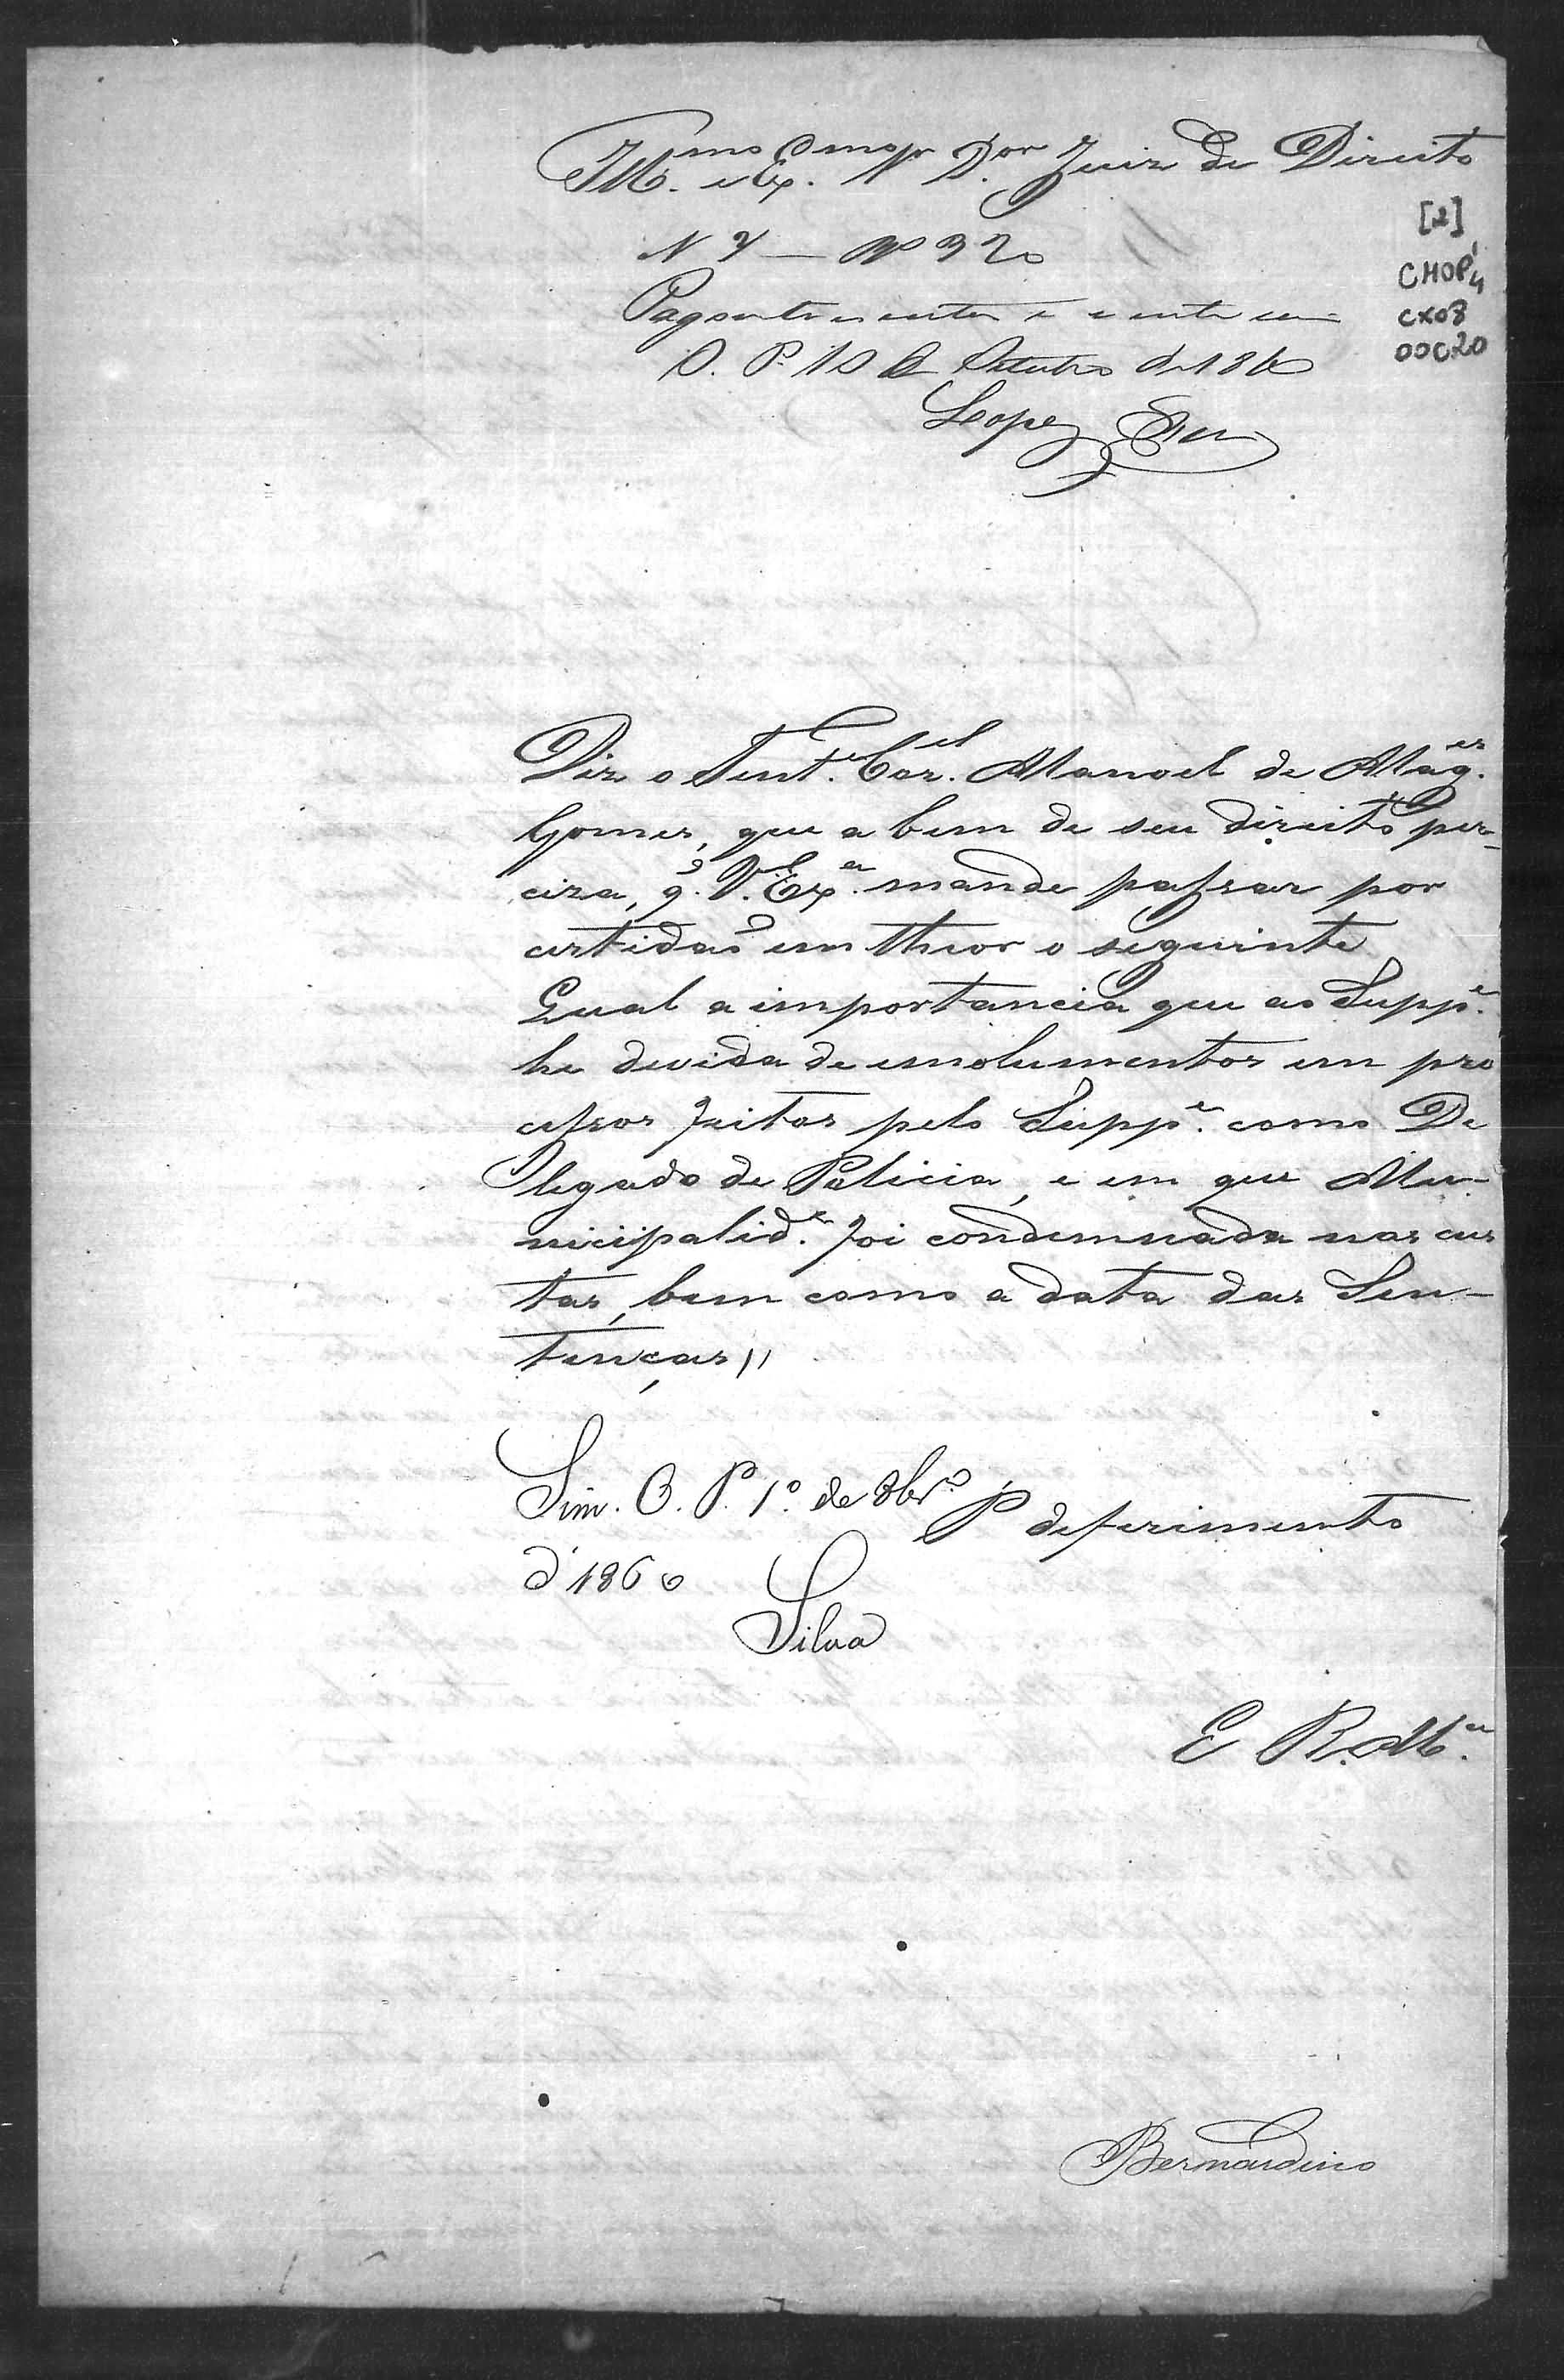 Ill.mo e Ex.mo Sr. D.or Juiz de Direito
[2]
CHOP
cx08
00020
N 4 — 320
Pag
O. P. 10 de Outubro de 1860
Lopes
Diz o Tent.e Cor.el Manoel de Mag.es
Gomes, que a bem de seu direito per-
ciza, q. V. Ex.a mande passar por
certidaõ em theor o seguinte
Qual a importancia que ao Supp.e
he devida de emolumentos em pro
cessos feitos pelo Supp.e como De
legado de Policia, e em que Mu-
nicipalid.e foi condemnada nas cus
tas, bem como a data das Sen-
tenças,,
Sim. O. P. 1º. de 8br.o
d'1860
Silva
P deferimento
E R. M.ce
Bernardino